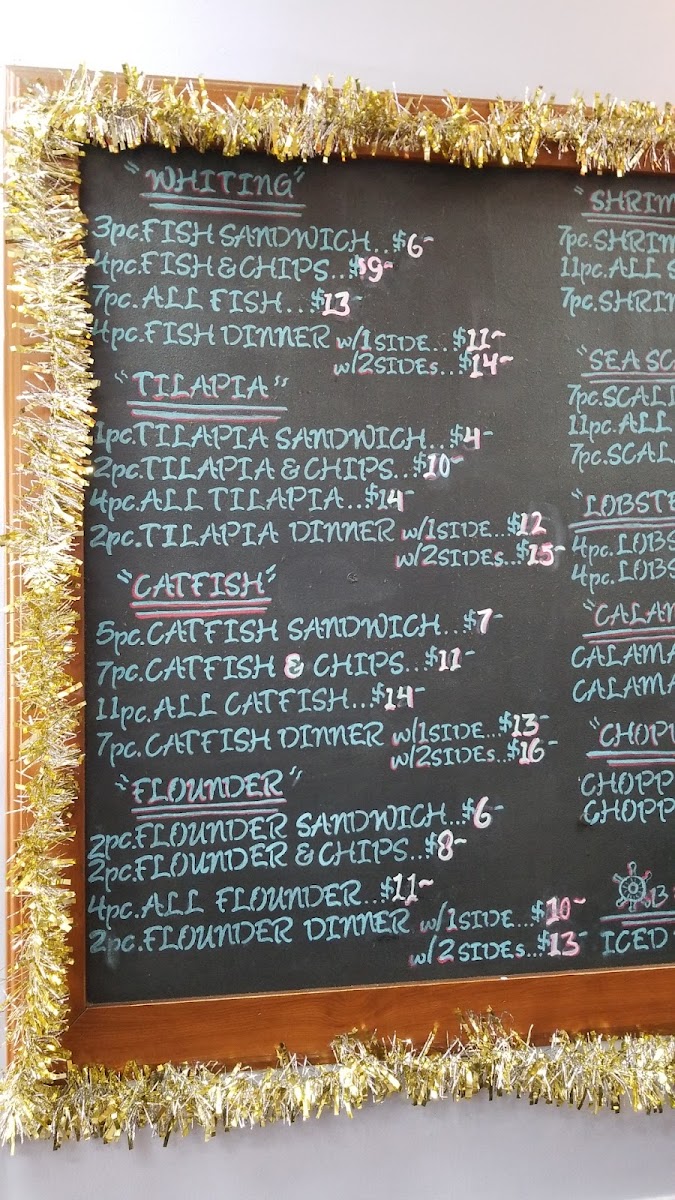 "WHITING"
3pc.FISH SANDWICH...$6-
4pc.FISH & CHIPS...$9-
7pc.ALL FISH...$13-
4pc.FISH DINNER w/1SIDE...$11-
w/2SIDEs...$14-
"TILAPIA"
1pc.TILAPIA SANDWICH...$4-
2pc.TILAPIA & CHIPS...$10-
4pc.ALL TILAPIA...$14-
2pc.TILAPIA DINNER w/1SIDE...$12
w/2SIDEs...$15-
"CATFISH"
5pc.CATFISH SANDWICH...$7-
7pc.CATFISH & CHIPS...$11-
11pc.ALL CATFISH...$14-
7pc.CATFISH DINNER w/1SIDE...$13-
w/2SIDEs...$16-
"FLOUNDER"
2pc.FLOUNDER SANDWICH...$6-
2pc.FLOUNDER & CHIPS...$8-
4pc.ALL FLOUNDER...$11-
2pc.FLOUNDER DINNER w/1SIDE...$10-
w/2SIDEs...$13-
"SHRIM
7pc.SHRIM
11pc.ALL S
7pc.SHRIN
"SEA SC
7pc.SCALL
11pc.ALL
7pc.SCAL
"LOBSTE
4pc.LOBS
4pc.LOBS
"CALAM
CALAMA
CALAMA
"CHOP
CHOPP
CHOPP
ICED